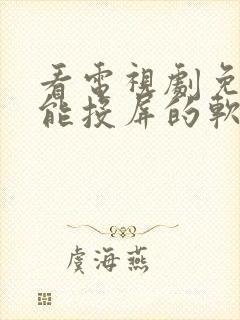 看電視劇免
能投屏的軟
虞海燕